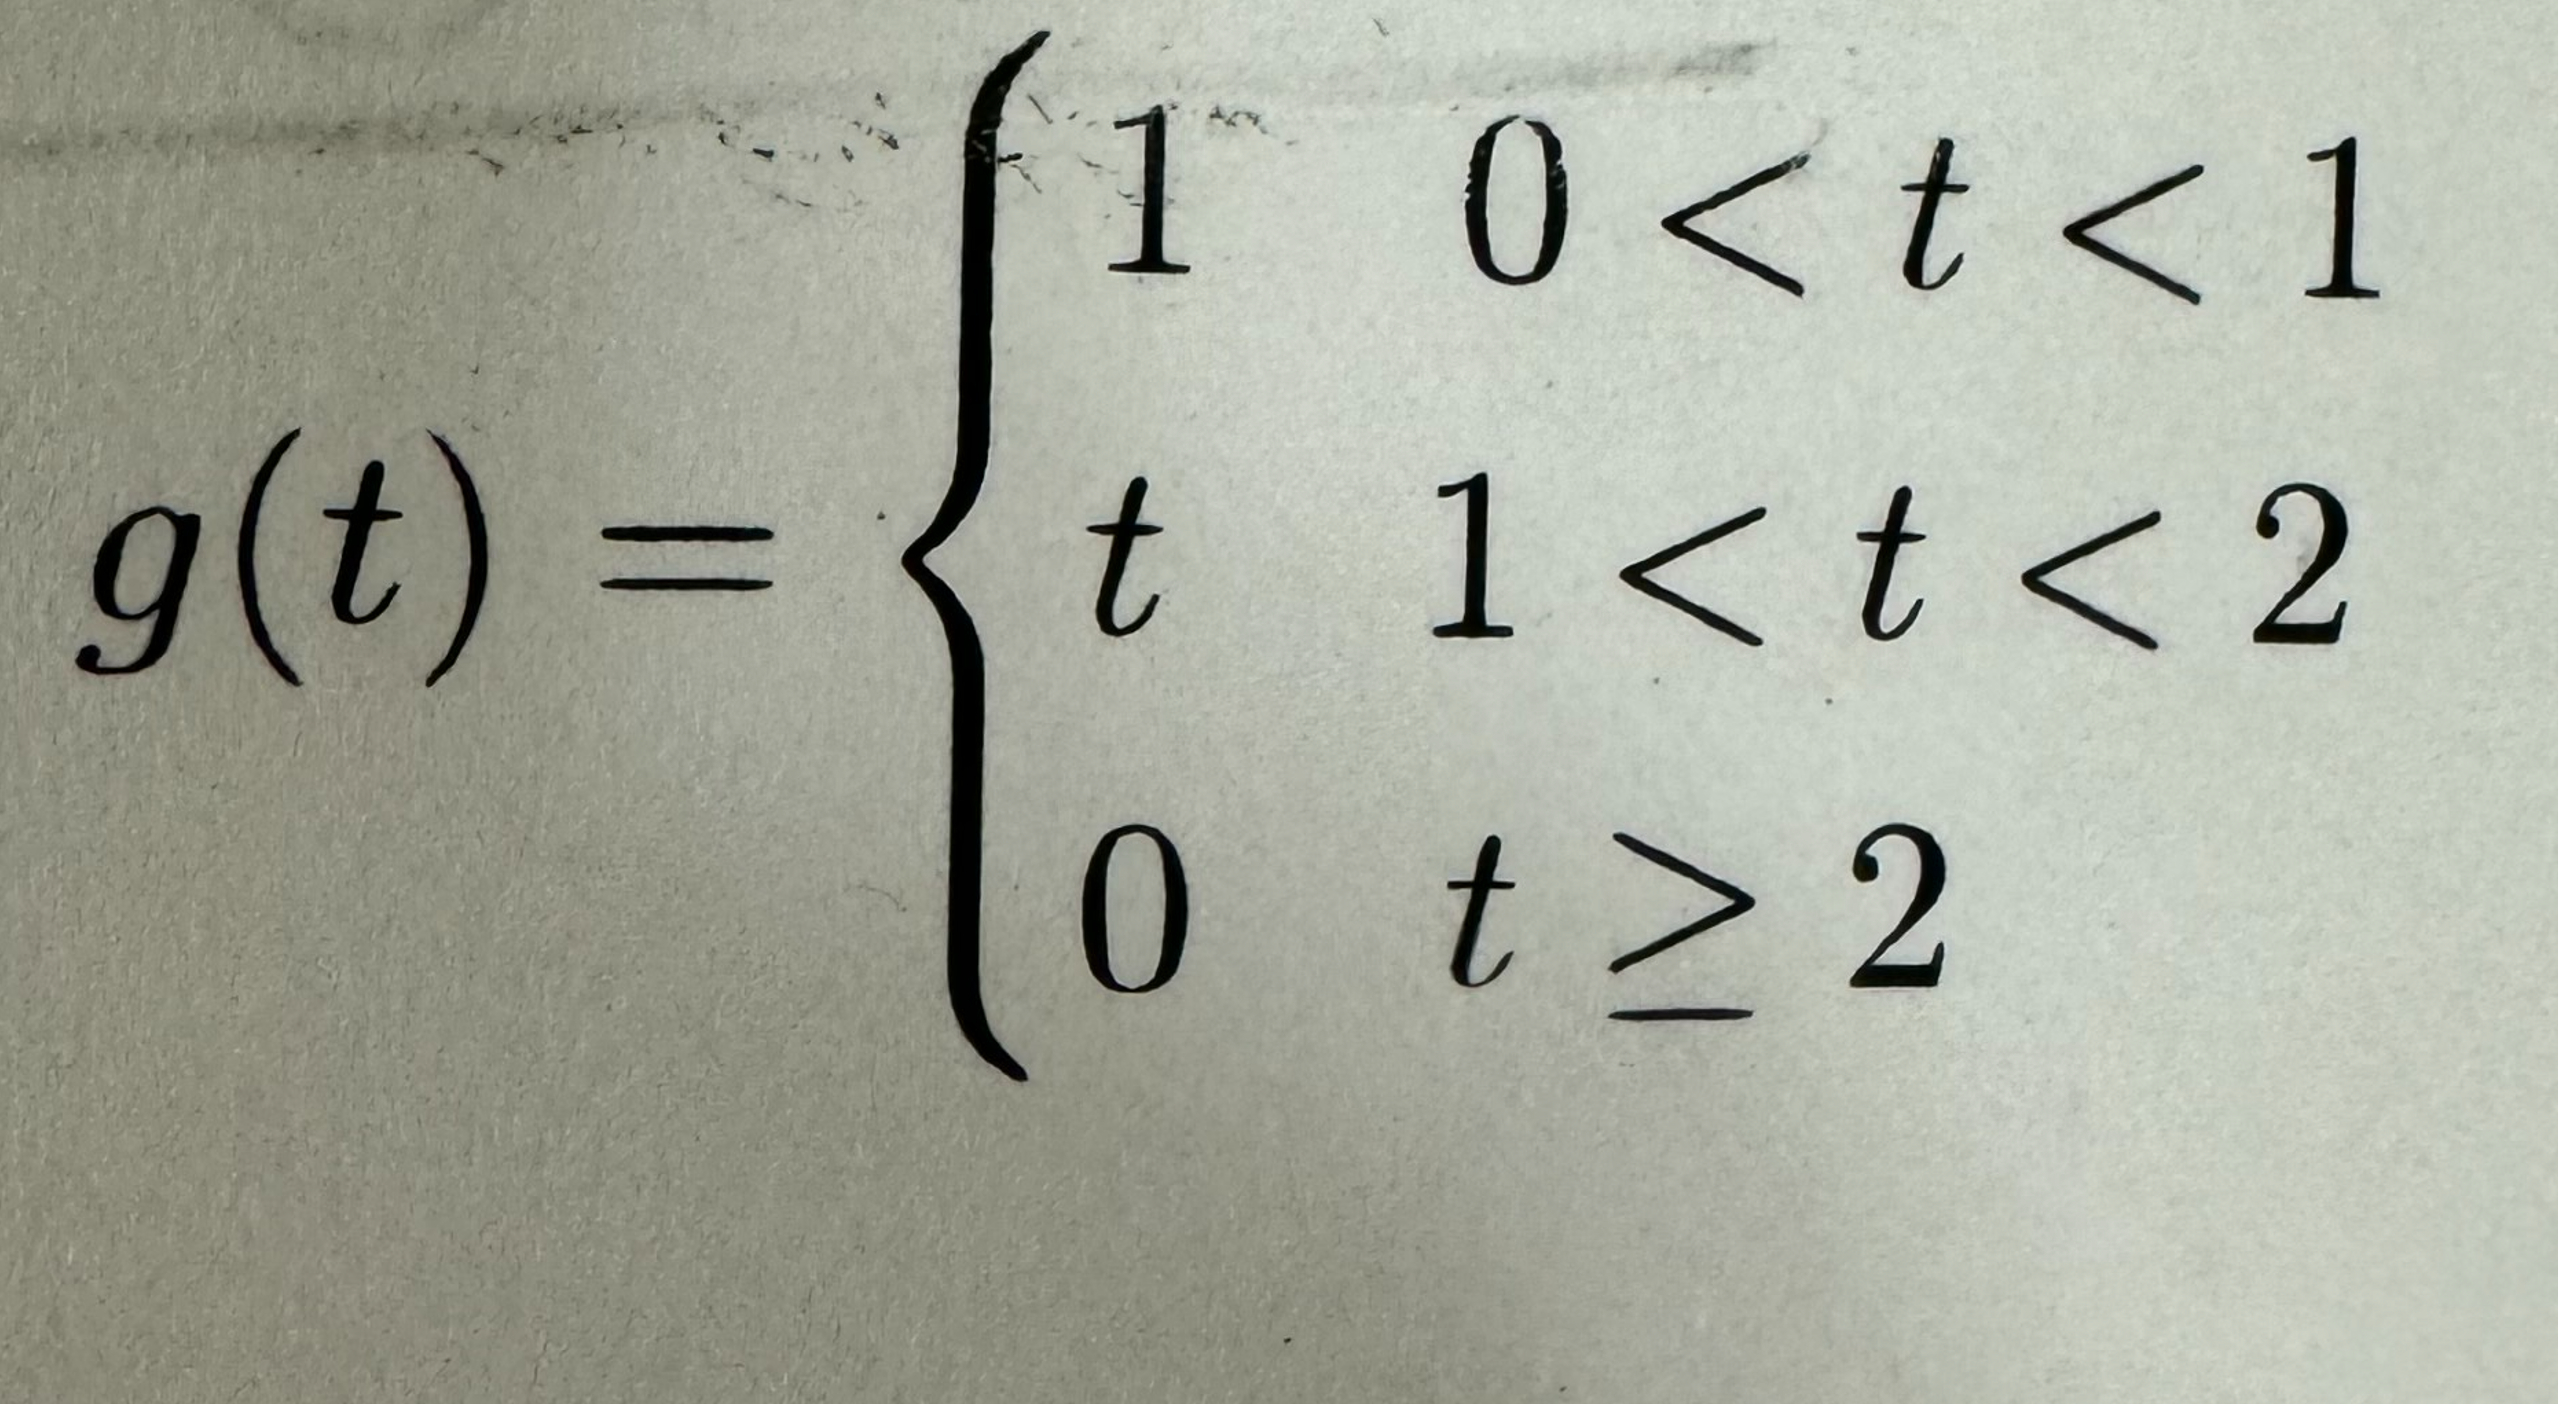 g(t) = { 1 0 < t < 1
t 1 < t < 2
0 t ≥ 2